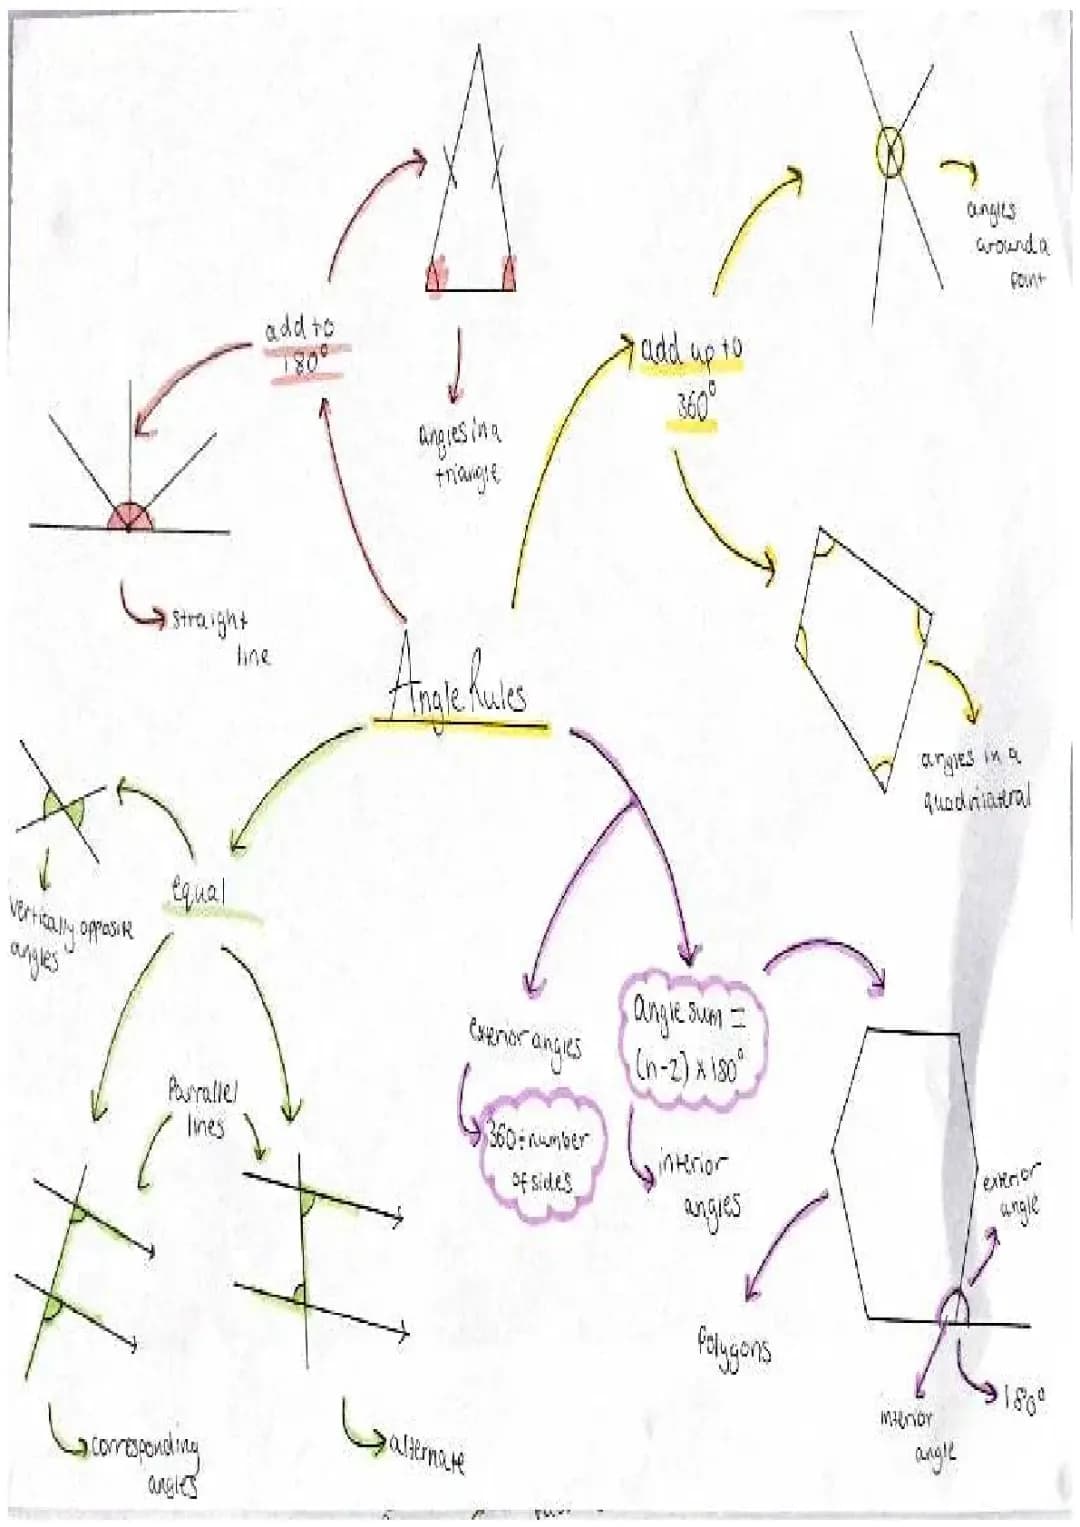 add to
180°
angles in a
triangle
straight
line
add up to
360°
angles
around a
point
angles in a
quadrilateral
Angle Rules
equal
vertically opposite
angles
Parrallel
lines
corresponding
angles
alternate
exterior angles
360÷number
of sides
Angle sum =
(n-2) x 180°
interior
angles
Polygons
exterior
angle
interior
angle
180°